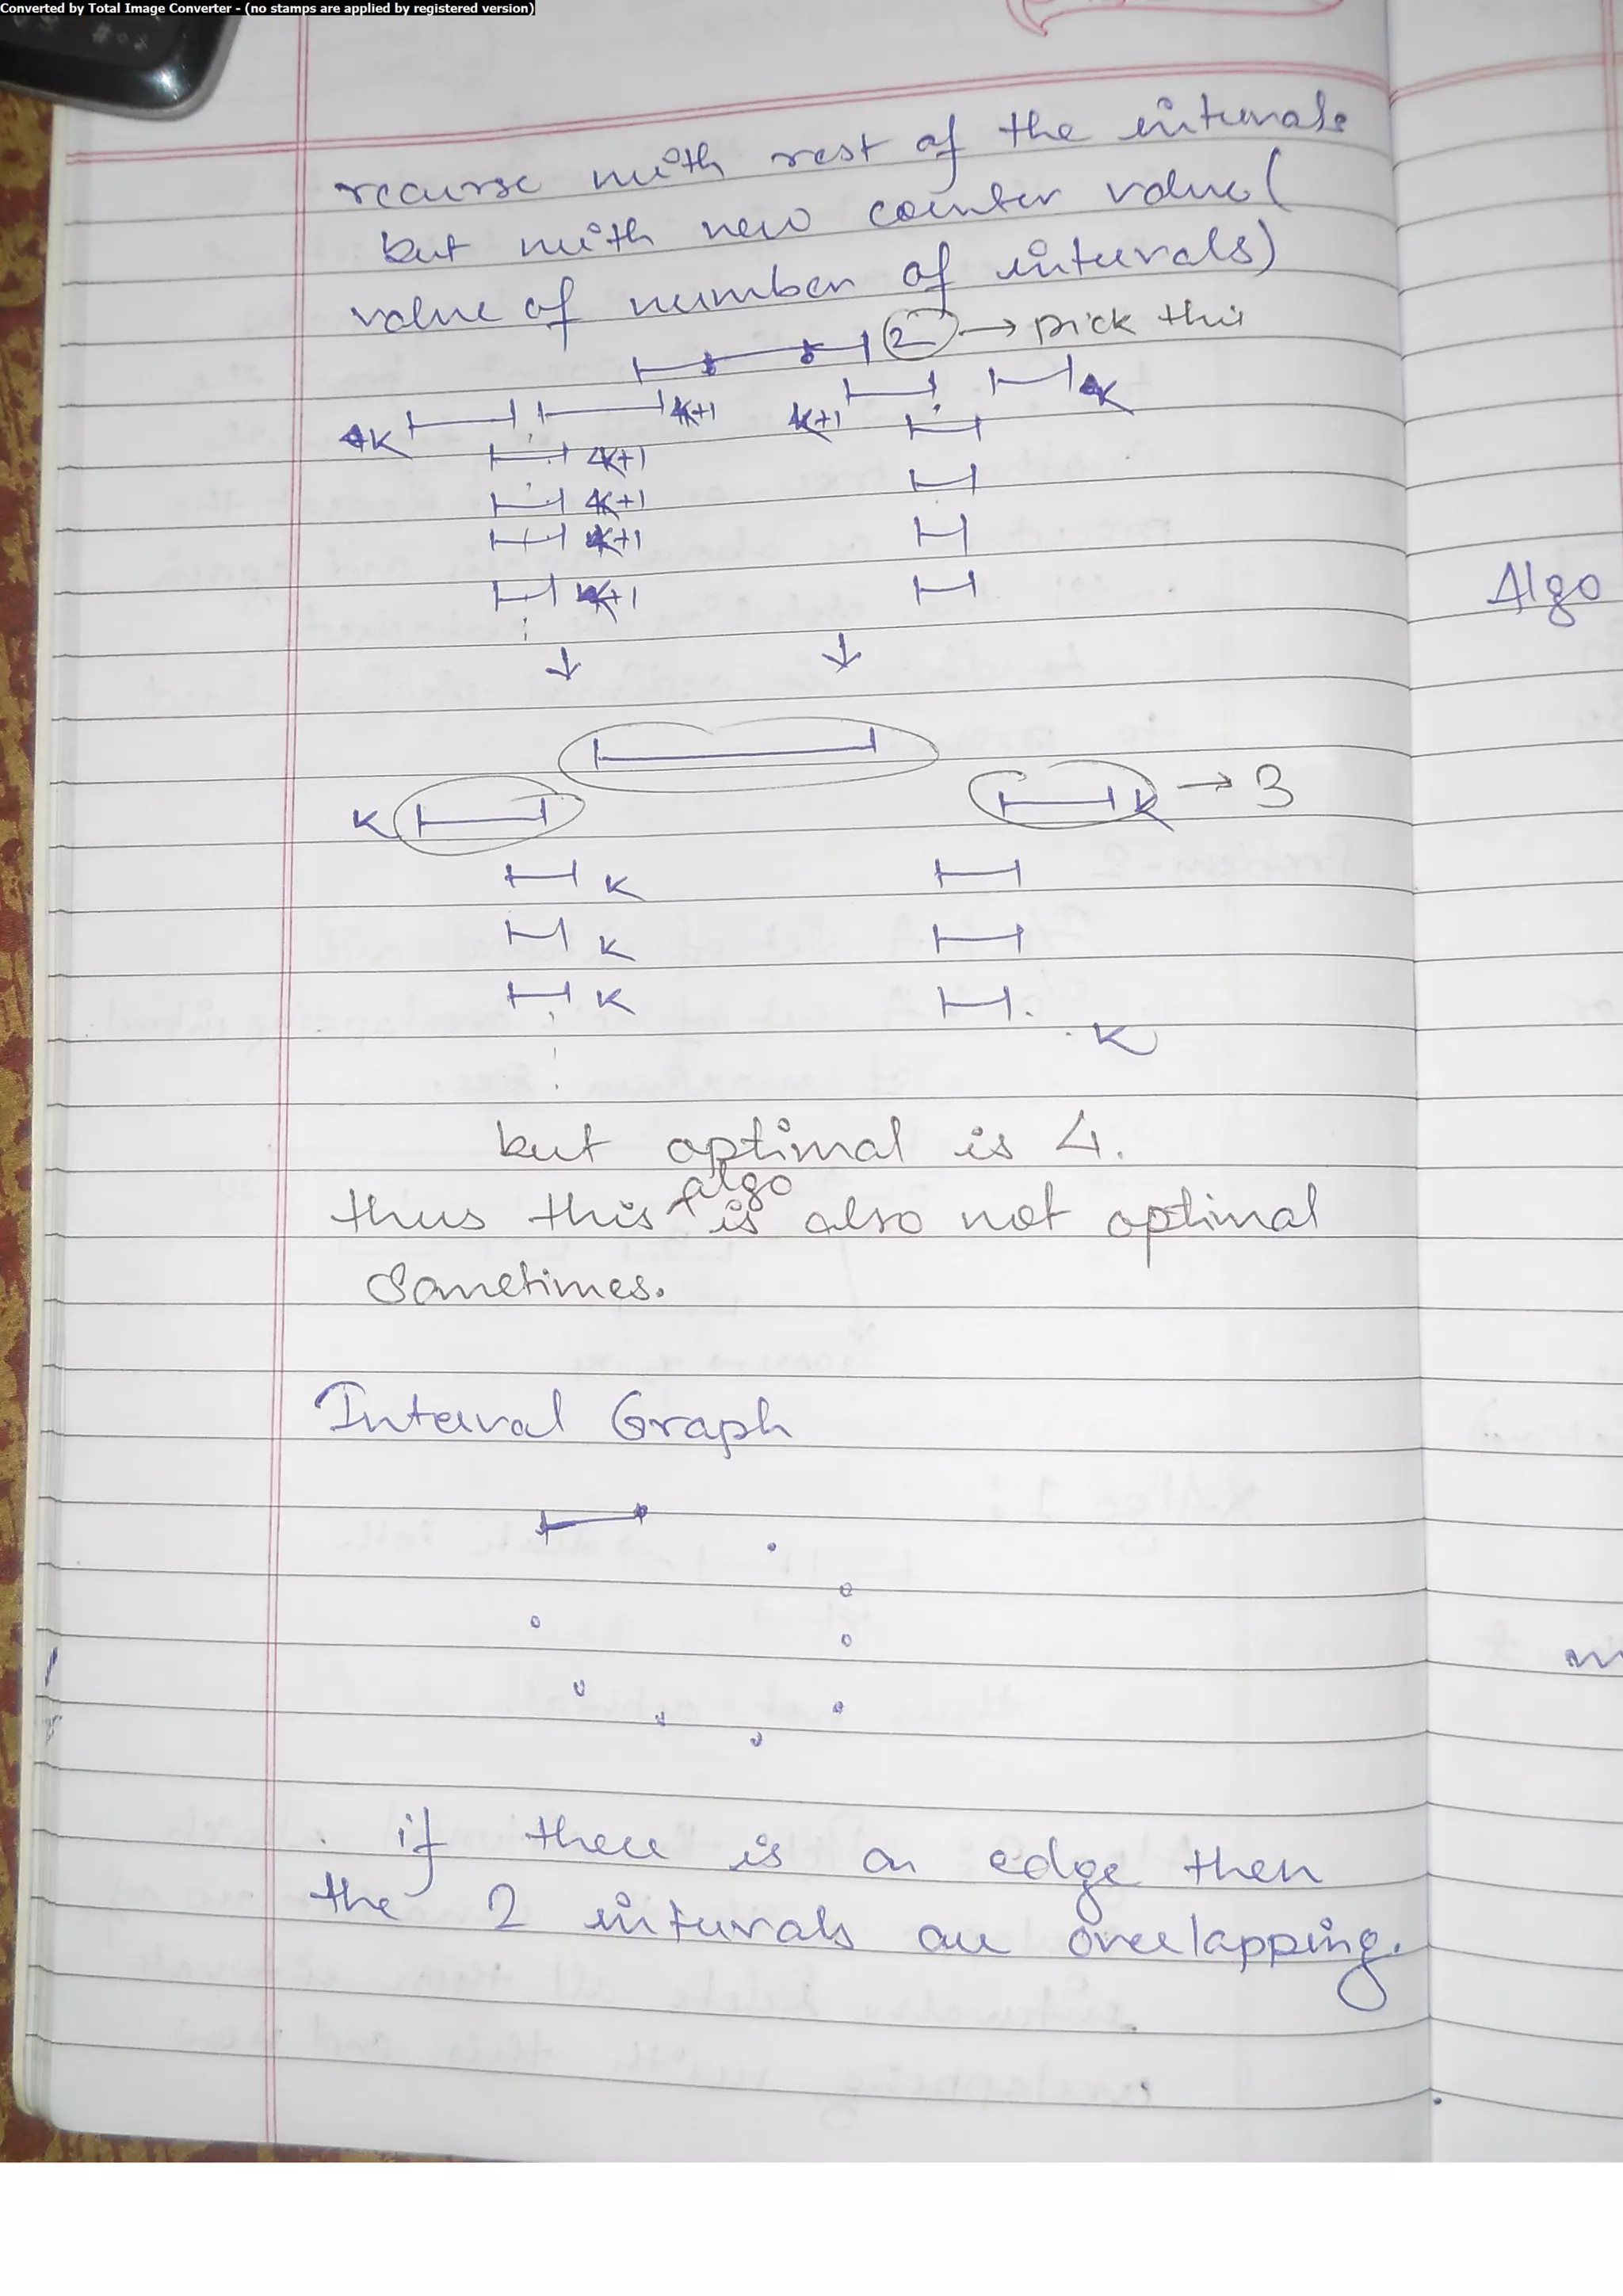 Converted by Total Image Converter - (no stamps are applied by registered version)
recurse with rest of the intervals
but with new counter value (
value of number of intervals)
2 → pick this
K K+1 K+1 K
K+1
K+1
K+1
K+1
Algo
K K → 3
K
K
K
K
but optimal is 4.
algo
thus this is also not optimal
sometimes.
Interval Graph
if there is an edge then
the 2 intervals are overlapping.